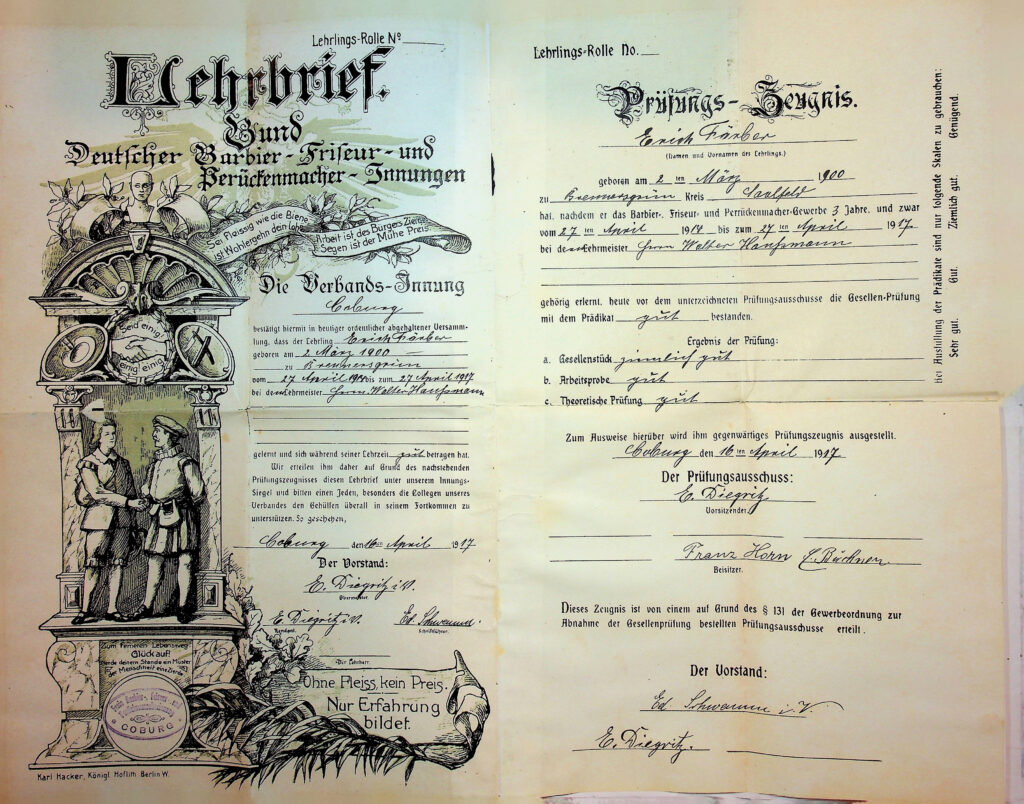 Lehrlings-Rolle No
Lehrbrief.
Bund
Deutscher Barbier-Friseur-und
Perückenmacher-Innungen
Sei fleissig wie die Biene
ist Wohlergehn dein Lohn
Arbeit ist des Bürgers Zierde
Segen ist der Mühe Preis.
Die Verbands-Innung
Coburg
bestätigt hiermit in heutiger ordentlicher abgehaltener Versamm-
lung, dass der Lehrling Erich Färber
geboren am 2 März 1900
zu
vom 27 April 1914 bis zum 27 April 1917
bei dem Lehrmeister Herrn Walter
gelernt und sich während seiner Lehrzeit gut betragen hat.
Wir erteilen ihm daher auf Grund des nachstehenden
Prüfungszeugnisses diesen Lehrbrief unter unserem Innungs-
Siegel und bitten einen Jeden, besonders die Collegen unseres
Verbandes den Gehülfen überall in seinem Fortkommen zu
unterstützen. So geschehen,
Coburg den 16ten April 1917
Der Vorstand:
E. Diegritz i.V.
Obermeister
E. Diegritz i.V. Ed. Schwamm
Rendant. Schriftführer.
Der Lehrherr.
Seid einig
einig einig
Zum ferneren Lebensweg
Glück auf!
Werde deinem Stande ein Muster
der Menschheit eine Zierde
COBURG
Ohne Fleiss, kein Preis.
Nur Erfahrung
bildet.
Karl Hacker, Königl. Hoflith. Berlin W.
Lehrlings-Rolle No.
Prüfungs-Zeugnis.
Erich Färber
(Namen und Vornamen des Lehrlings.)
geboren am 2ten März 1900
zu Kreis Saalfeld
hat, nachdem er das Barbier-, Friseur- und Perrückenmacher-Gewerbe 3 Jahre, und zwar
vom 27ten April 1914 bis zum 27ten April 1917.
bei dem Lehrmeister Herrn Walter
gehörig erlernt, heute vor dem unterzeichneten Prüfungsausschusse die Gesellen-Prüfung
mit dem Prädikat gut bestanden.
Ergebnis der Prüfung:
a. Gesellenstück ziemlich gut
b. Arbeitsprobe gut
c. Theoretische Prüfung gut
Zum Ausweise hierüber wird ihm gegenwärtiges Prüfungszeugnis ausgestellt.
Coburg den 16ten April 1917.
Der Prüfungsausschuss:
E. Diegritz
Vorsitzender.
Franz Horn
Beisitzer.
Dieses Zeugnis ist von einem auf Grund des § 131 der Gewerbeordnung zur
Abnahme der Gesellenprüfung bestellten Prüfungsausschusse erteilt.
Der Vorstand:
Ed. Schwamm i.V.
E. Diegritz.
Bei Ausfüllung der Prädikate sind nur folgende Skalen zu gebrauchen:
Sehr gut. Gut. Ziemlich gut. Genügend.